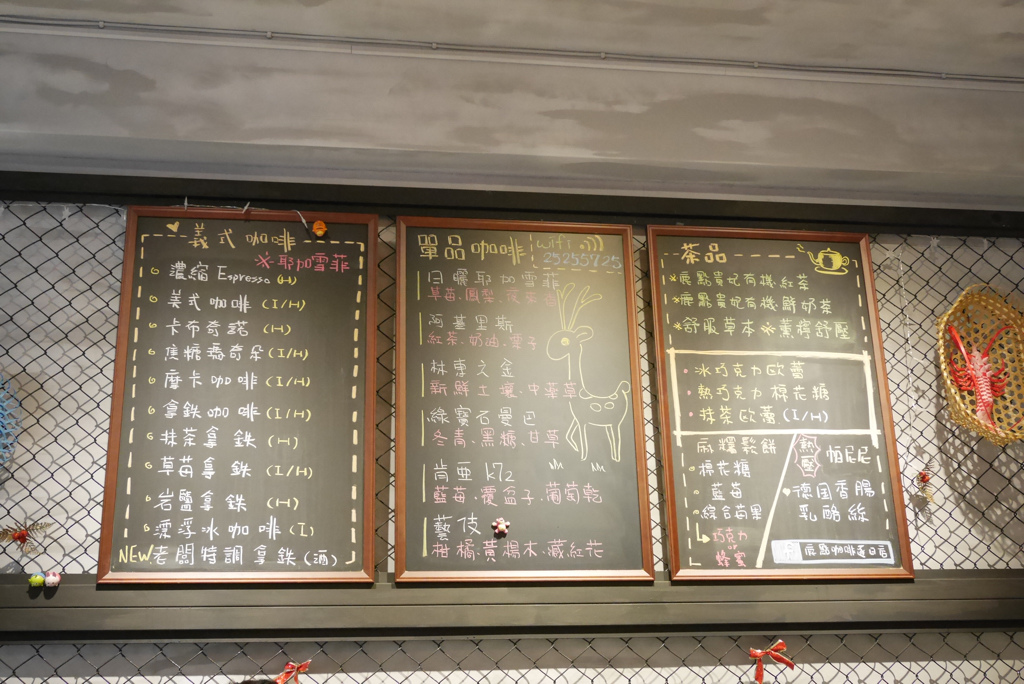 義式咖啡
※耶加雪菲
濃縮 Espresso (H)
美式咖啡 (I/H)
卡布奇諾 (H)
焦糖瑪奇朵 (I/H)
摩卡咖啡 (I/H)
拿鐵咖啡 (I/H)
抹茶拿鐵 (H)
草莓拿鐵 (I/H)
岩鹽拿鐵 (H)
漂浮冰咖啡 (I)
NEW 老闆特調拿鐵 (酒)
單品咖啡 wifi
25255725
日曬耶加雪菲
草莓.鳳梨.
阿基里斯
紅茶.奶油.栗子
林東之金
新鮮土壤.中藥草
綠寶石曼巴
冬青.黑糖.甘草
肯亞 K72
藍莓.覆盆子.葡萄乾
藝伎
柑橘.黃楊木.藏紅花
茶品
※鹿點貴妃有機紅茶
※鹿點貴妃有機鮮奶茶
※舒眠草本 ※薰檸舒壓
冰巧克力歐蕾
熱巧克力棉花糖
抹茶歐蕾 (I/H)
麻糬鬆餅
棉花糖
藍莓
綜合莓果
巧克力
or
蜂蜜
熱壓 帕尼尼
德国香腸
乳酪絲
鹿點咖啡蛋日言